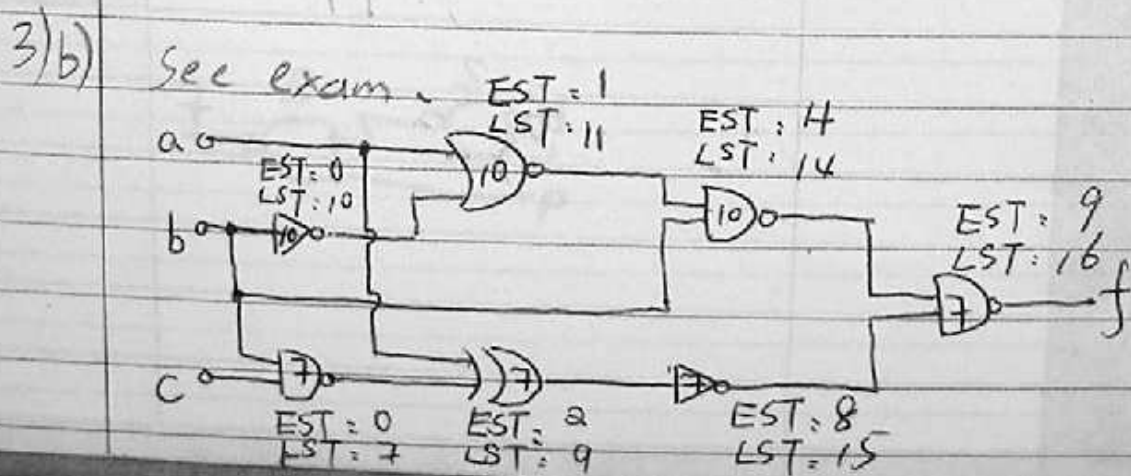 3)b)
See exam.
EST: 1
LST: 11
a
10
EST: 4
LST: 14
EST: 0
LST: 10
b
10
10
EST: 9
LST: 16
7
f
c
7
7
7
EST: 0
LST: 7
EST: 2
LST: 9
EST: 8
LST: 15